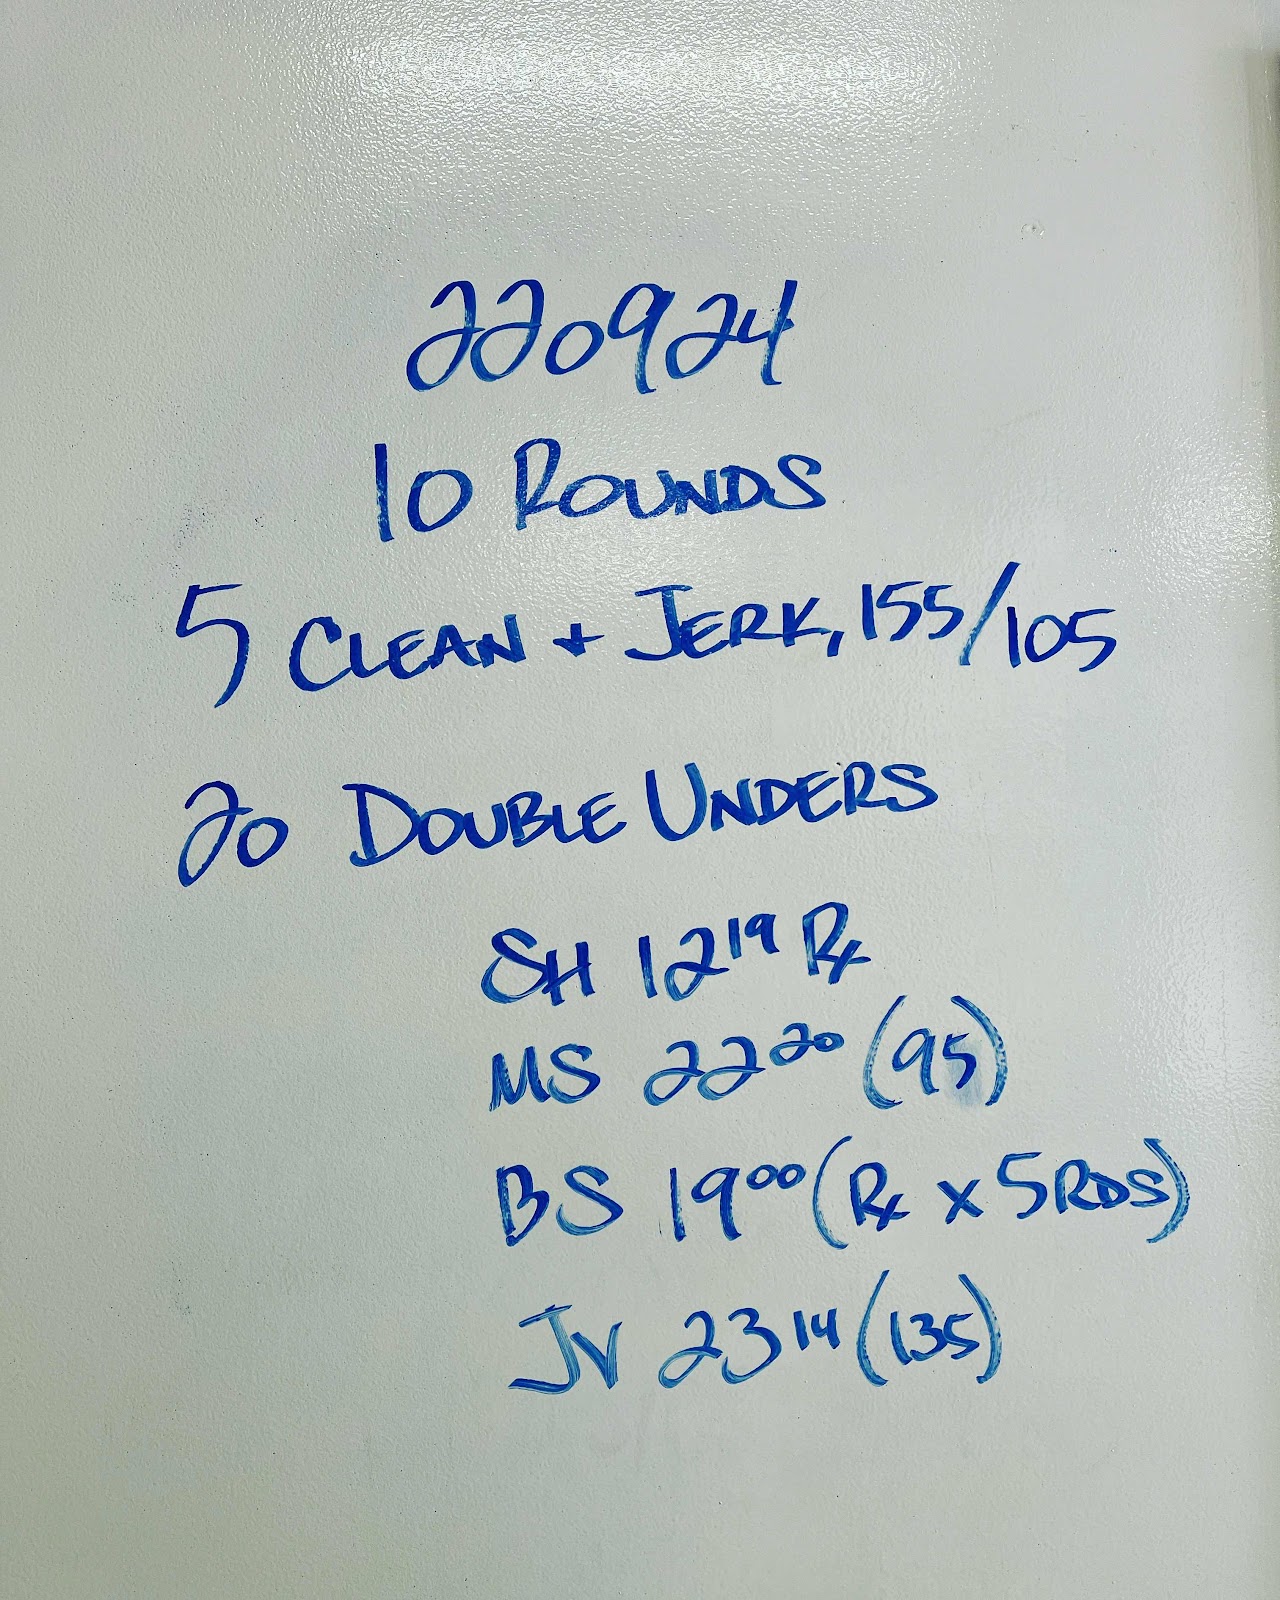 220924
10 ROUNDS
5 CLEAN + JERK, 155/105
20 DOUBLE UNDERS
SH 12 19 Rx
MS 22 20 (95)
BS 19 00 (Rx x 5RDS)
JV 23 14 (135)